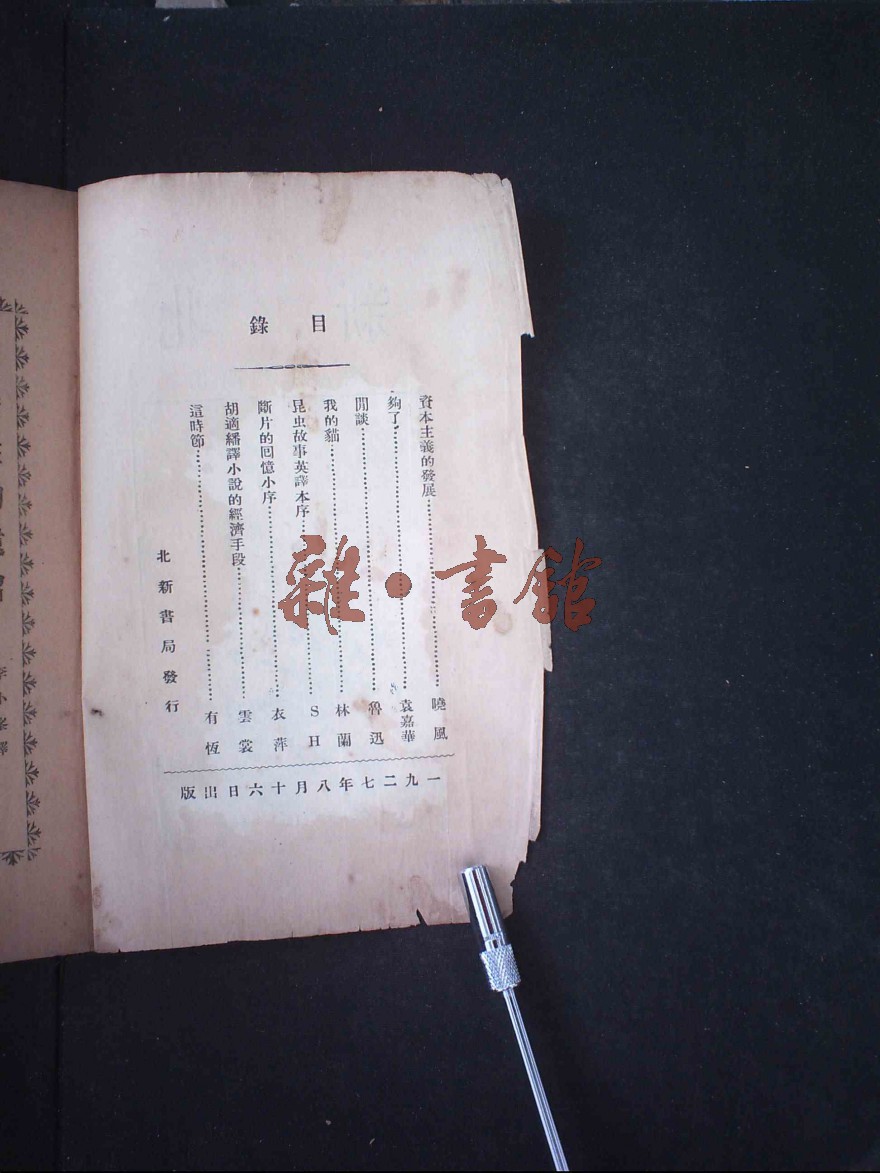 目錄
資本主義的發展 曉風
夠了 袁嘉華
閒談 魯迅
我的貓 林蘭
昆虫故事英譯本序 SH
斷片的回憶小序 衣萍
胡適繙譯小說的經濟手段 雲裳
這時節 有恆
北新書局發行
一九二七年八月十六日出版
雜·書館